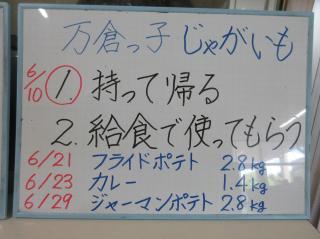 万倉っ子 じゃがいも
6/10 1. 持って帰る
2. 給食で使ってもらう
6/21 フライドポテト 2.8kg
6/23 カレー 1.4kg
6/29 ジャーマンポテト 2.8kg